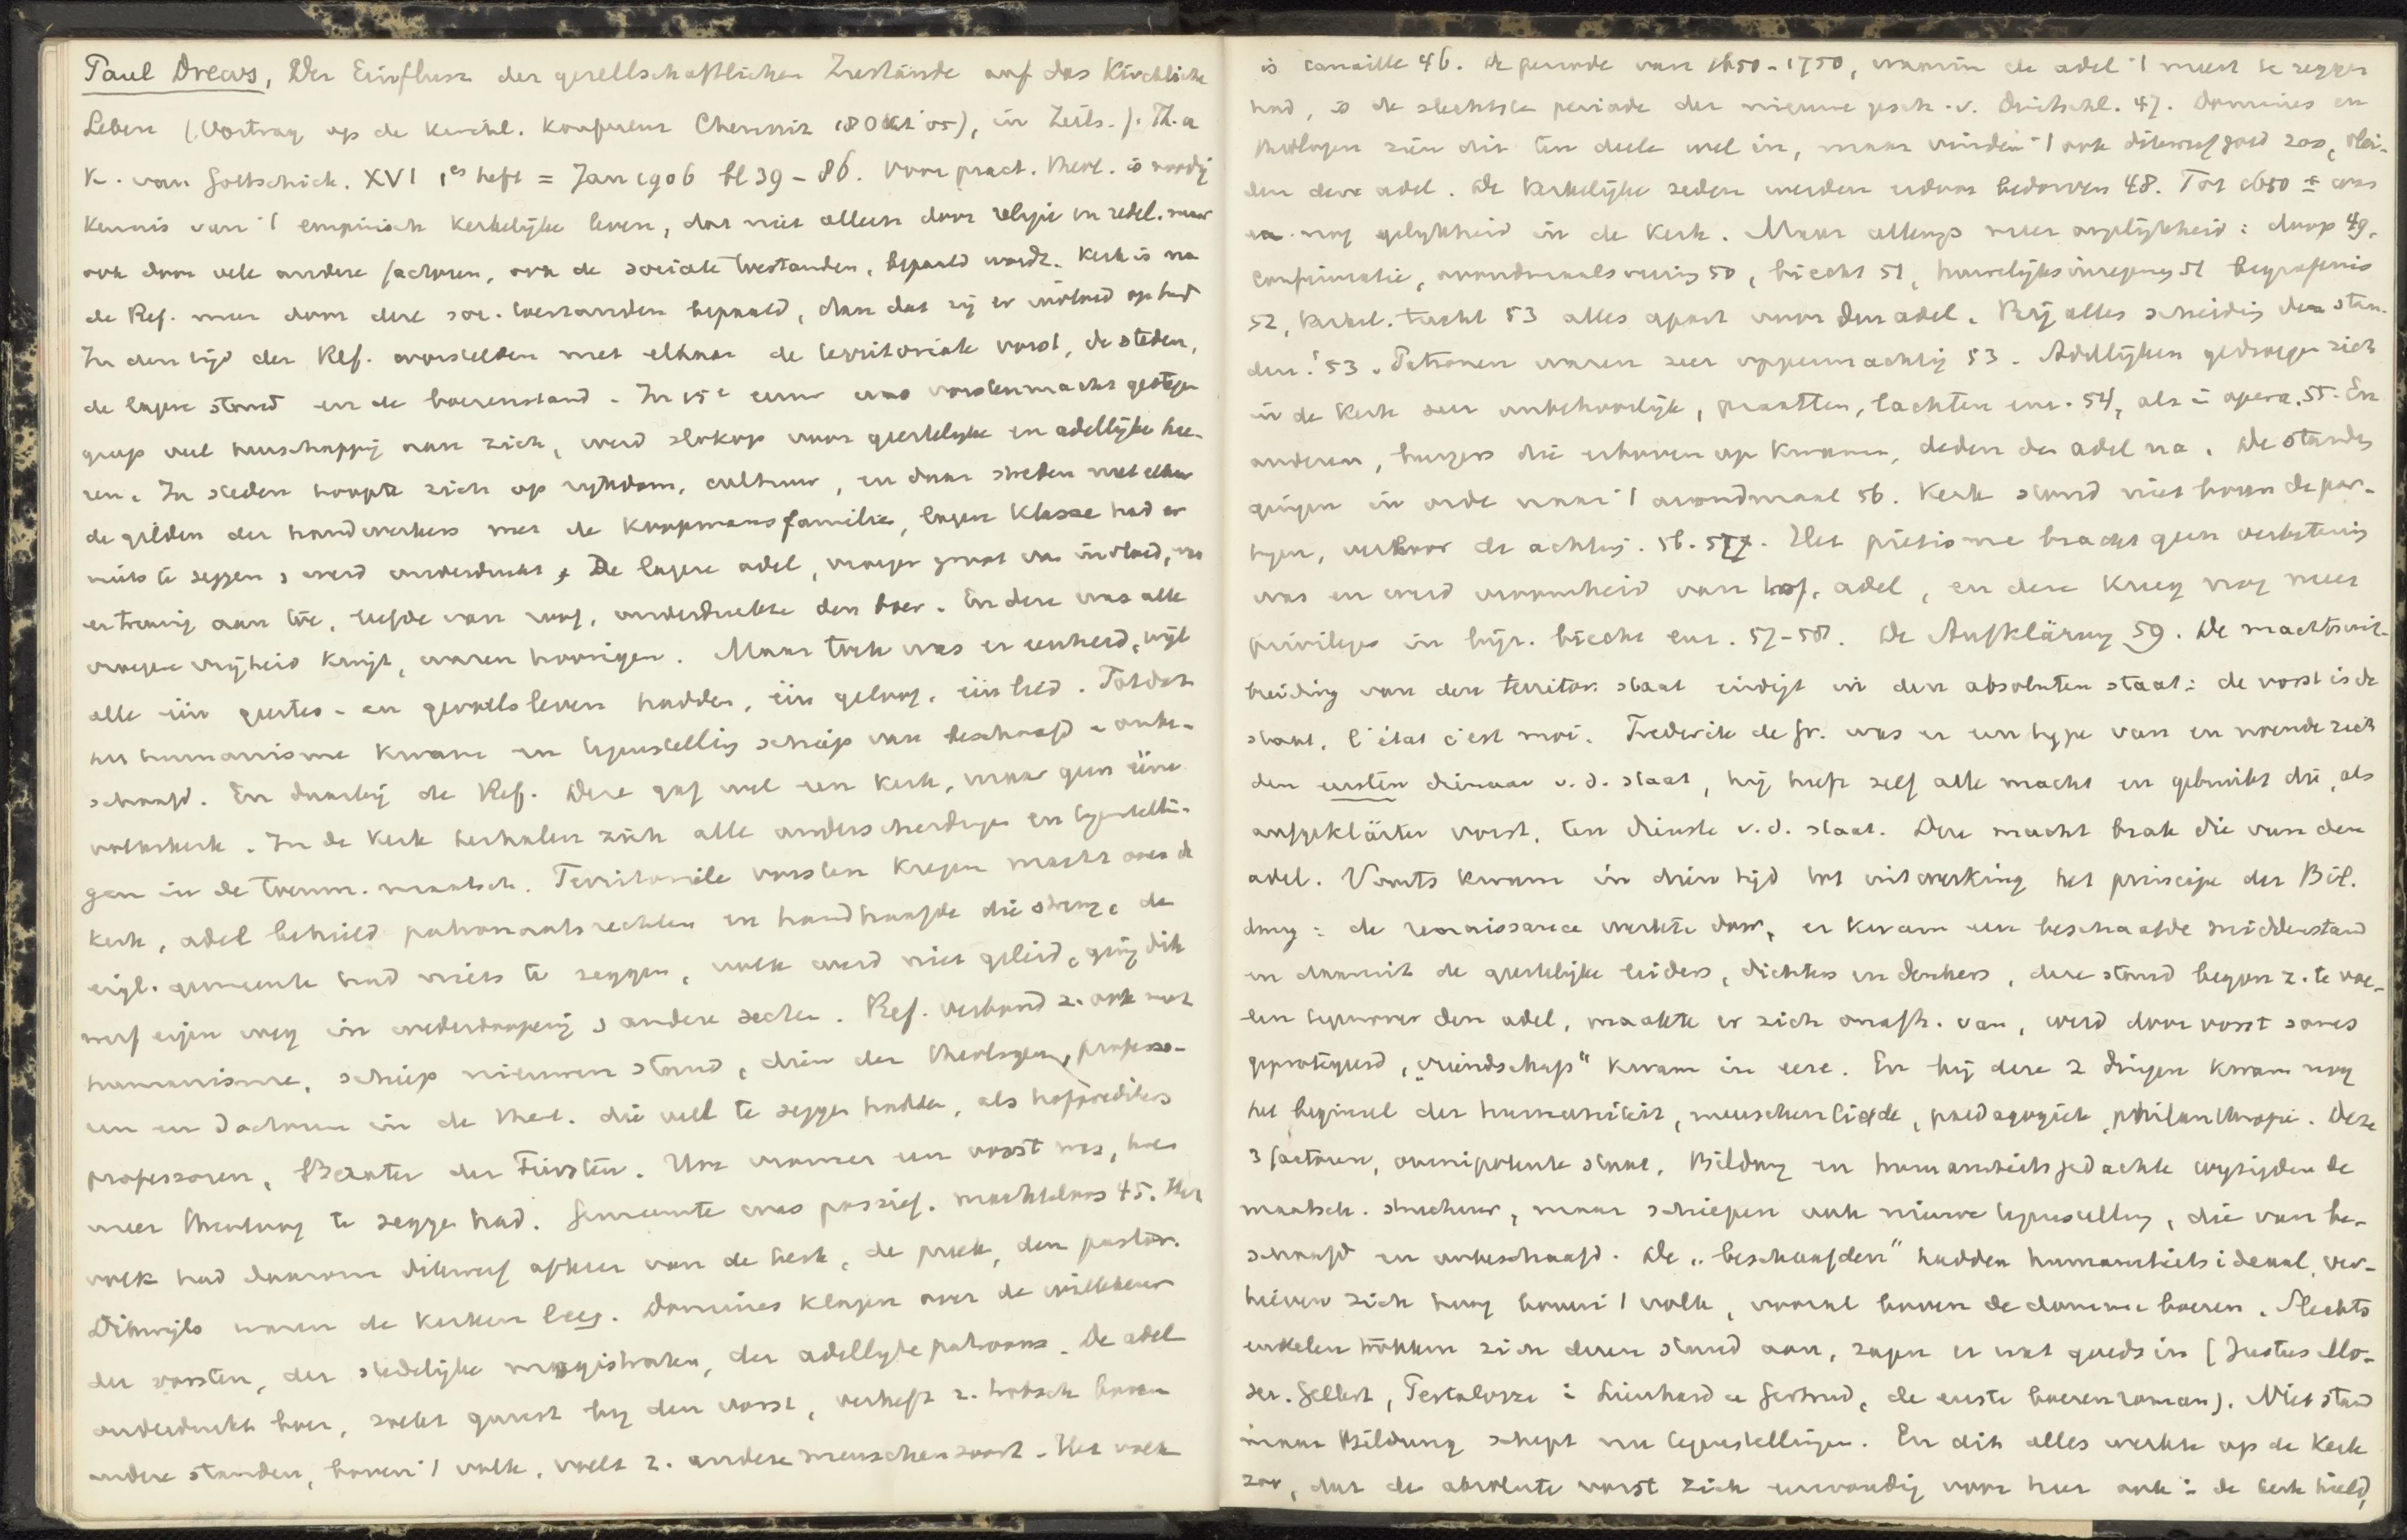 Paul Drews, Der Einfluss der gesellschaftlichen Zustände auf das Kirchliche
Leben (Vortrag op de Kirchl. Konferenz Chemnitz 18 Okt '05), in Zeits. f. Th. u
K. van Gottschick. XVI 1es heft = Jan 1906 bl 39-86. Voor pract. theol. is noodig
Kennis van 't empirisch Kerkelijke leven, dat niet alleen door religie en zedel. maar
ook door vele andere factoren, ook de sociale toestanden, bepaald wordt. Kerk is na
de Ref. meer door deze soc. toestanden bepaald, dan dat zij er invloed op had
In den tijd der Ref. worstelden met elkaar de territoriale vorst, de steden,
de lagere stand en de boerenstand. In 15e eeuw was vorstenmacht gestegen
greep veel heerschappij aan zich, werd slokop voor geestelijke en adellijke hee-
ren. In steden hoopte zich op rijkdom, cultuur, en daar streden met elkaar
de gilden der handwerkers met de Koopmansfamilies, lagere Klasse had er
niets te zeggen, werd onderdrukt. De lagere adel, vroeger groot van invloed, was
er treurig aan toe, leefde van roof, onderdrukte den boer. En deze was alle
vroegere vrijheid kwijt, waren hoorigen. Maar toch was er eenheid, wijl
alle één geestes- en gevoelsleven hadden, één geloof, één lied. Totdat
het humanisme kwam en tegenstelling schiep van beschaafd en onbe-
schaafd. En daarbij de Ref. Deze gaf wel een Kerk, maar geen ééne
volkskerk. In de Kerk herhalen zich alle onderscheidingen en tegenstellin-
gen in de toenm. maatsch. Territoriale vorsten kregen macht over de
Kerk, adel behield patronaatsrechten en handhaafde die streng, de
eigl. gemeente had niets te zeggen, volk werd niet geleid, ging dik
werf eigen weg in wederdooperij, andere secten. Ref. verbond z. ook met
humanisme, schiep nieuwen stand, dien der theologen, professo-
ren en doctoren in de theol. die veel te zeggen hadden, als hofpredikers
professoren, Berater der Fürsten. Hoe vromer een vorst was, hoe
meer theoloog te zeggen had. Gemeente was passief, machteloos 45. Het
volk had daarom dikwerf afkeer van de kerk, de preek, den pastor.
Dikwijls waren de kerken leeg. Dominees klagen over de willekeur
der vorsten, der stedelijke magistraten, der adellijke patroons. De adel
onderdrukt boer, zoekt gunst bij den vorst, verheft z. trotsch boven
andere standen, boven 't volk, voelt z. andere menschensoort. Het volk
is canaille 46. De periode van 1650-1750, waarin de adel 't meest te zeggen
had, is de slechtste periode der nieuwe gesch. v. Duitschl. 47. Dominees en
theologen zien dit ten deele wel in, maar vinden 't ook dikwerf goed zoo, vlei-
den deze adel. De kerkelijke zeden werden erdoor bedorven 48. Tot 1650 ± was
er nog gelijkheid in de Kerk. Maar allengs meer ongelijkheid: doop 49,
confirmatie, avondmaalsviering 50, biecht 51, huwelijksinzegening 51 begrafenis
52, kerkel. tucht 53 alles apart voor den adel. Bij alles scheiding der stan-
den! 53. Patronen waren zeer oppermachtig 53. Adellijken gedroegen zich
in de Kerk zeer onbehoorlijk, praatten, lachten enz. 54, als in opera. 55. En
anderen, burgers die erboven op kwamen, deden den adel na. De standen
gingen in orde naar 't avondmaal 56. Kerk stond niet boven de par-
tijen, verloor de achting. 56. 57. Het pietisme bracht geen verbetering
was en werd vroomheid van hof, adel, en deze kreeg nog meer
privileges in bijz. biecht enz. 57-58. De Aufklärung 59. De machtsuit-
breiding van den territor. staat eindigt in den absoluten staat: de vorst is de
staat, l'état c'est moi. Frederik de Gr. was er een type van en noemde zich
den eersten dienaar v.d. staat, hij heeft zelf alle macht en gebruikt die, als
aufgeklärter vorst, ten dienste v.d. staat. Deze macht brak die van den
adel. Voorts kwam in dien tijd tot uitwerking het principe der Bil-
dung: de renaissance werkte door, er kwam een beschaafde middenstand
en daaruit de geestelijke leiders, dichters en denkers, deze stand begon z. te voe-
len tegenover den adel, maakte er zich onafh. van, werd door vorst soms
geprotegeerd, "vriendschap" kwam in eere. En bij deze 2 dingen kwam nog
het beginsel der humaniteit, menschenliefde, paedagogiek, philanthropie. Deze
3 factoren, omnipotente staat, Bildung en humaniteitsgedachte wijzigden de
maatsch. structuur, maar schiepen ook nieuwe tegenstelling, die van be-
schaafd en onbeschaafd. De "beschaafden" hadden humaniteitsideaal, ver-
hieven zich hoog boven 't volk, vooral boven de domme boeren. Slechts
enkelen trokken zich dezen stand aan, zagen er wat goeds in (Justus Mö-
ser. Gellert, Pestalozzi in Lienhard u Gertrud, de eerste boerenroman). Niet stand
maar Bildung schept nu tegenstellingen. En dit alles werkte op de Kerk
zoo, dat de absolute vorst zich eenvoudig voor heer ook in de kerk hield,